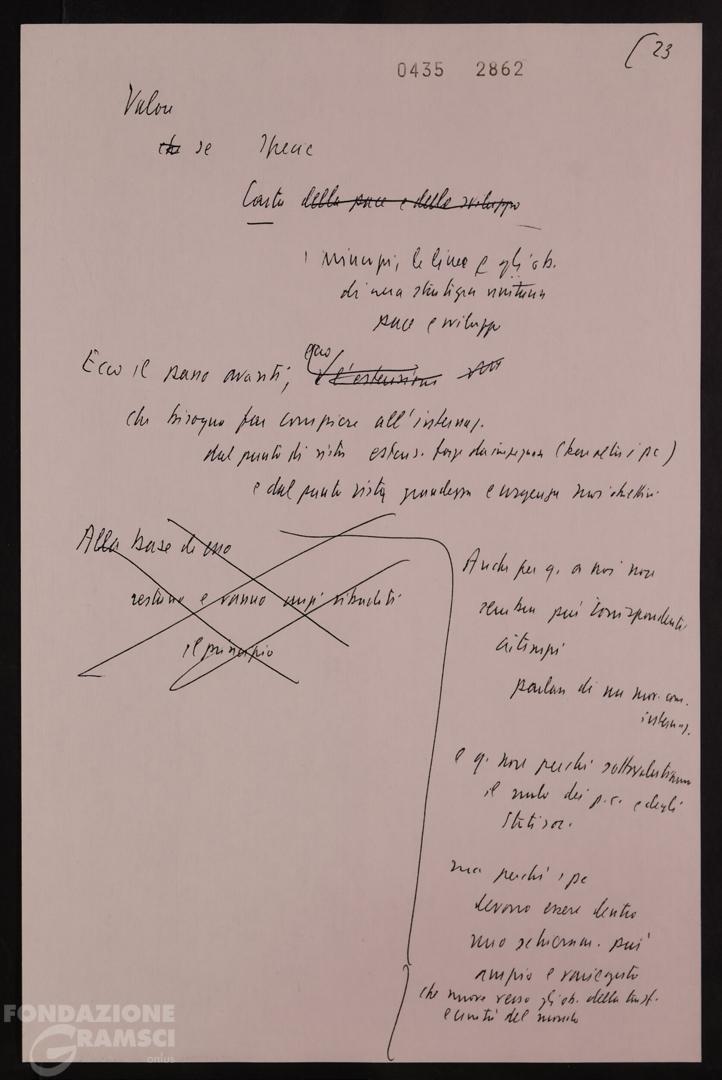 0435 2862
23
Valore
che se specie
Carta della pace e dello sviluppo
i principi, le linee e gli ob.
di una strategia unitaria
pace e sviluppo
Ecco il passo avanti, ecco
e l'estensione
che bisogna far compiere all'internaz.
dal punto di vista estens. forze da impegnare (ben oltre i pc)
e dal punto vista grandezza e urgenza suoi obiettivi
Alla base di esso
restano e vanno anzi ribaditi
il principio
Anche per q. a noi non
sembra più corrispondente
ai tempi
parlare di un mov. com.
internaz.
e q. non perché sottovalutiamo
il ruolo dei p.c. e degli
Stati soc.
ma perché i pc
devono essere dentro
uno schieram. più
ampio e variegato
che muova verso gli ob. della trasf.
e unità del mondo
FONDAZIONE
GRAMSCI
onlus